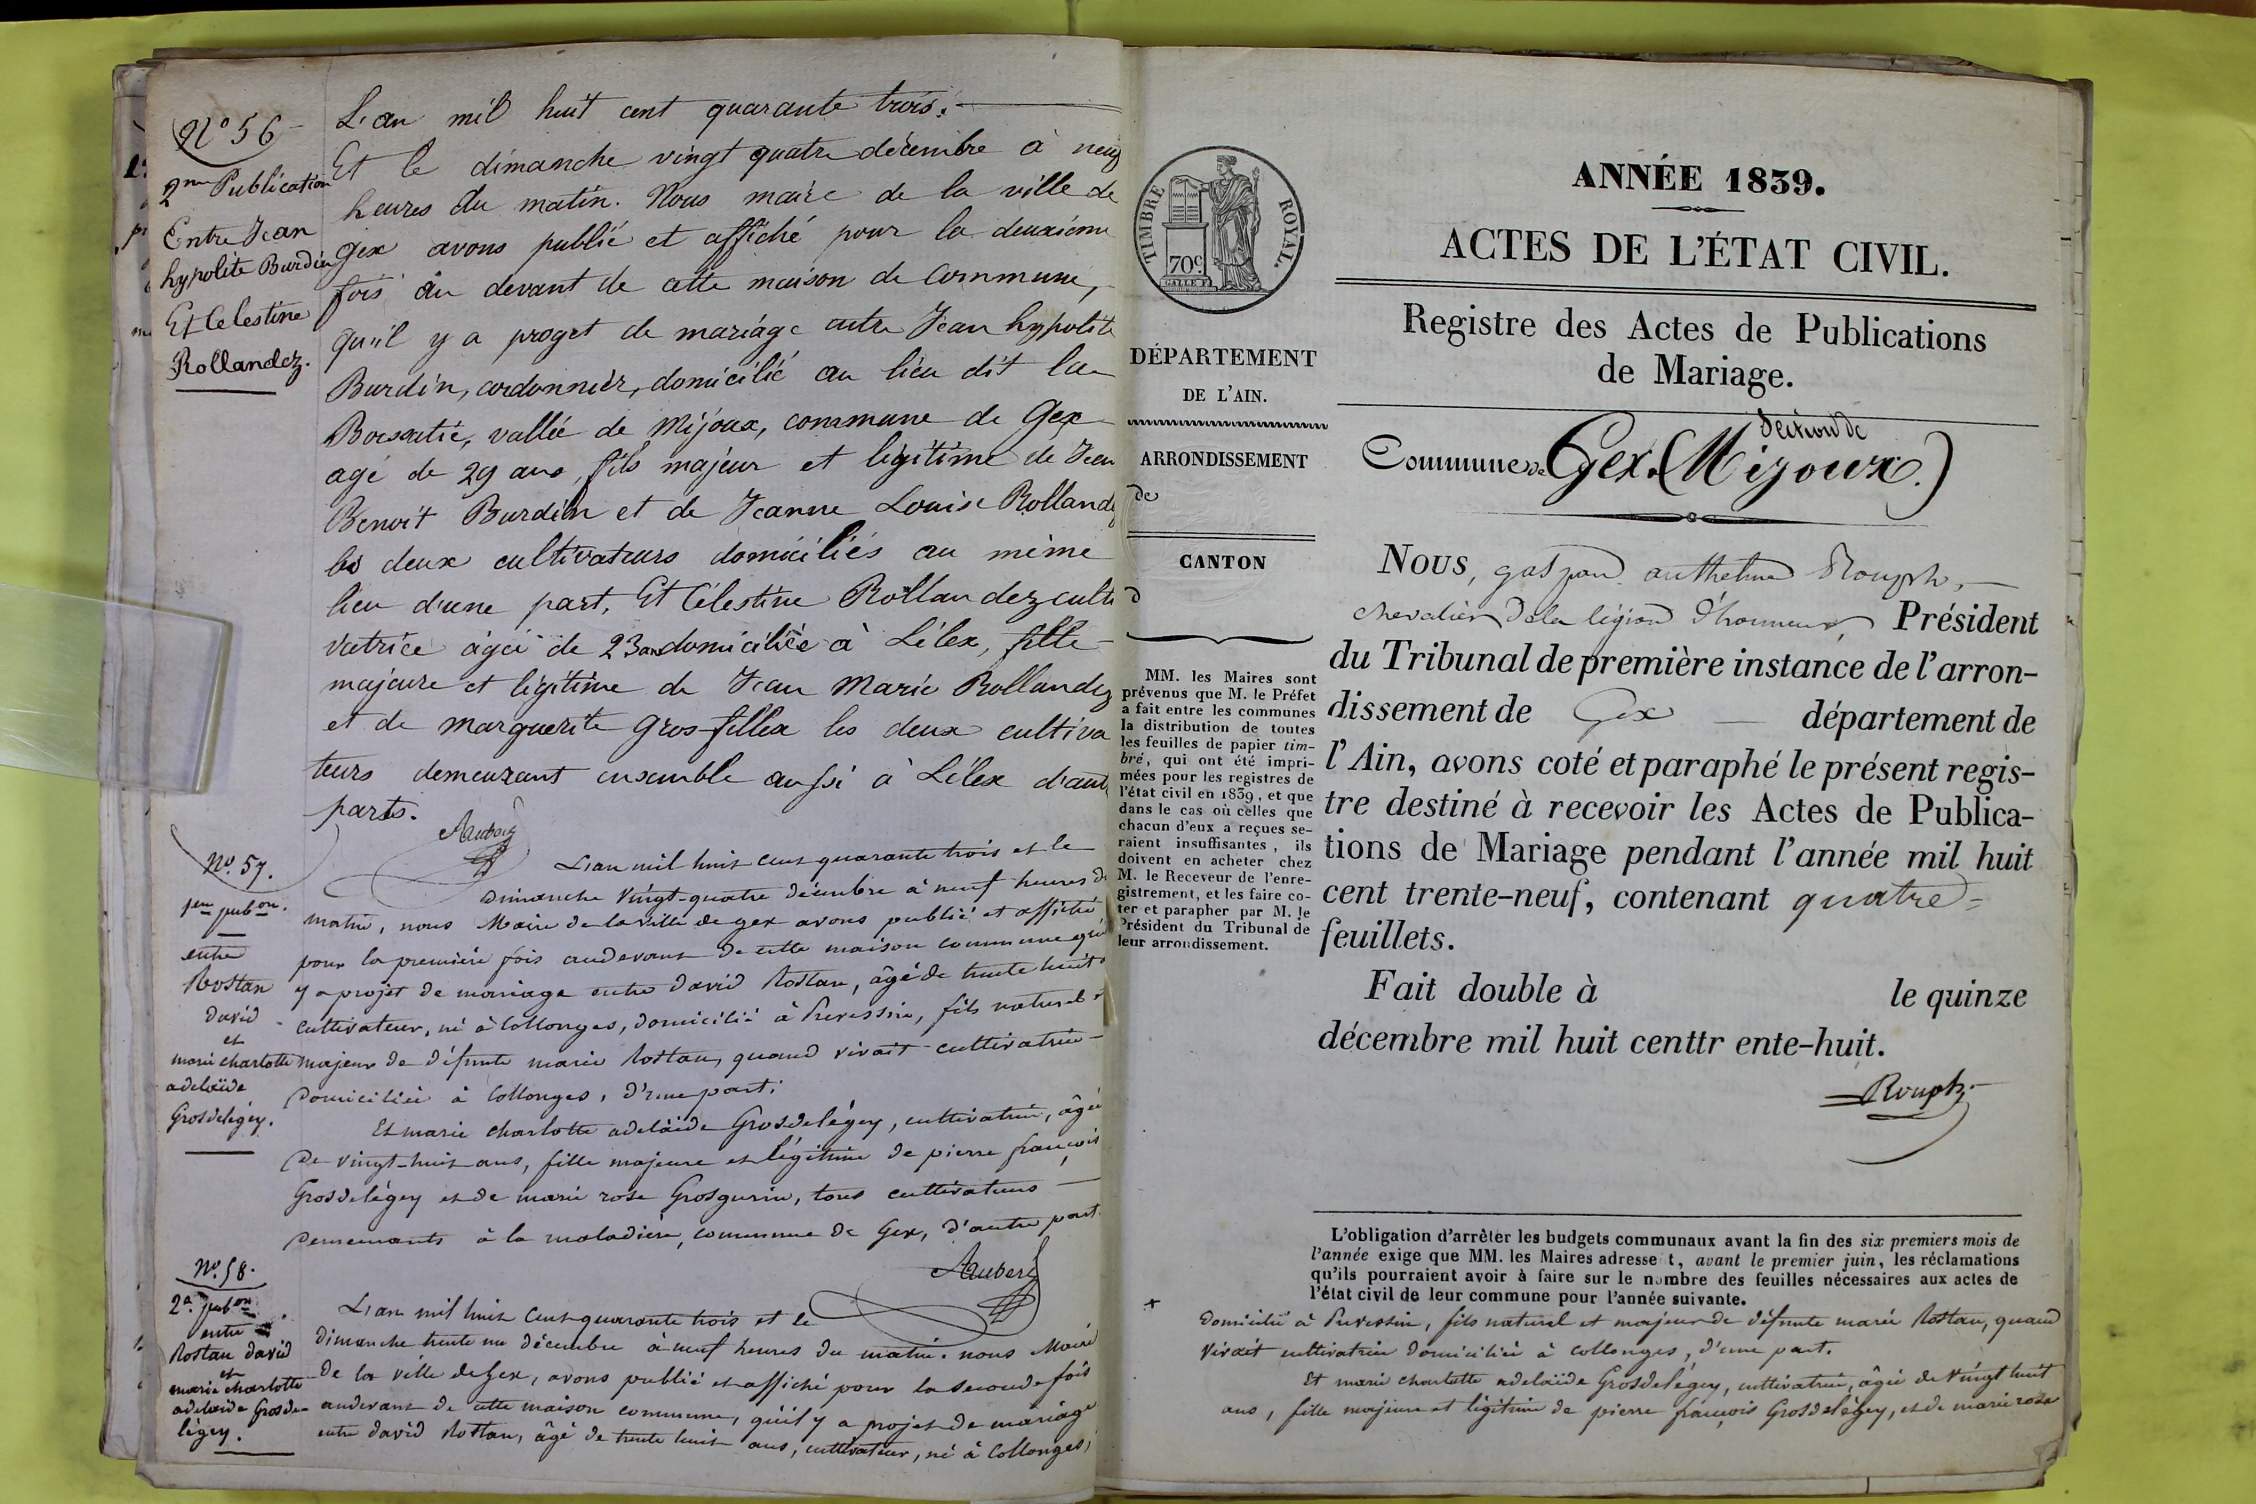 N° 56
2me Publication
Entre Jean
hypolite Burdin
Et Celestine
Rollandez.
L'an mil huit cent quarante trois.
Et le dimanche vingt quatre décembre à neuf
heures du matin. Nous maire de la ville de
Gex avons publié et affiché pour la deuxième
fois au devant de cette maison de Commune,
qu'il y a proget de mariage entre Jean hypolite
Burdin, cordonnier, domicilié au lieu dit la
vallée de Mijoux, commune de Gex
agé de 29 ans, fils majeur et légitime de Jean
Benoit Burdin et de Jeanne Louise Rolland
les deux cultivateurs domiciliés au même
lieu d'une part, Et Célestine Rollandez culti
vatrice agée de 23 ans domiciliée à Lélex, fille
majeure et légitime de Jean Marie Rollandez
et de marguerite Gros-fillex les deux cultiva
teurs demeurant ensemble aussi à Lélex d'autr
parts.
N° 57.
1ere pubon.
entre
Rostan
david
et
marie charlotte
adelaïde
Grosdelégey.
L'an mil huit cent quarante trois et le
dimanche vingt-quatre décembre à neuf heures du
matin, nous Maire de la ville de gex avons publié et affiché
pour la première fois audevant de cette maison commune qu'il
y a projet de mariage entre david Rostan, âgé de trente huit
cultivateur, né à Collonges, domicilié à Prevessin, fils naturel &
majeur de défunte marie Rostan, quand vivait cultivatrice
domiciliée à Collonges, d'une part;
Et marie charlotte adelaïde Grosdelégey, cultivatrice, âgée
de vingt-huit ans, fille majeure et légitime de pierre françois
Grosdelégey et de marie rose Grosgurin, tous cultivateurs
demeurants à la maladière, commune de Gex, d'autre part.
N° 58.
2e. pubon.
entre
Rostan david
et
marie charlotte
adelaïde Grosde-
légey.
L'an mil huit cent quarante trois et le
dimanche trente un décembre à neuf heures du matin. nous Maire
de la ville de Gex, avons publié et affiché pour la seconde fois
audevant de cette maison commune, qu'il y a projet de mariage
entre david Rostan, âgé de trente huit ans, cultivateur, né à Collonges,
TIMBRE ROYAL.
70c.
DÉPARTEMENT
DE L'AIN.
ARRONDISSEMENT
de
CANTON
d
MM. les Maires sont
prévenus que M. le Préfet
a fait entre les communes
la distribution de toutes
les feuilles de papier tim-
bré, qui ont été impri-
mées pour les registres de
l'état civil en 1839, et que
dans le cas où celles que
chacun d'eux a reçues se-
raient insuffisantes, ils
doivent en acheter chez
M. le Receveur de l'enre-
gistrement, et les faire co-
ter et parapher par M. le
Président du Tribunal de
leur arrondissement.
ANNÉE 1839.
ACTES DE L'ÉTAT CIVIL.
Registre des Actes de Publications
de Mariage.
Section de
Commune de Gex (Mijoux.)
NOUS, gaspard anthelme Rouph,
chevalier de la légion d'honneur, Président
du Tribunal de première instance de l'arron-
dissement de Gex département de
l'Ain, avons coté et paraphé le présent regis-
tre destiné à recevoir les Actes de Publica-
tions de Mariage pendant l'année mil huit
cent trente-neuf, contenant quatre
feuillets.
Fait double à le quinze
décembre mil huit centtr ente-huit.
Rouph
L'obligation d'arrêter les budgets communaux avant la fin des six premiers mois de
l'année exige que MM. les Maires adresse t, avant le premier juin, les réclamations
qu'ils pourraient avoir à faire sur le nombre des feuilles nécessaires aux actes de
l'état civil de leur commune pour l'année suivante.
domicilié à Prevessin, fils naturel et majeur de défunte marie Rostan, quand
vivait cultivatrice domiciliée à collonges, d'une part.
Et marie charlotte adelaïde Grosdelégey, cultivatrice, âgée de vingt huit
ans, fille majeure et légitime de pierre françois Grosdelégey, et de marie rose